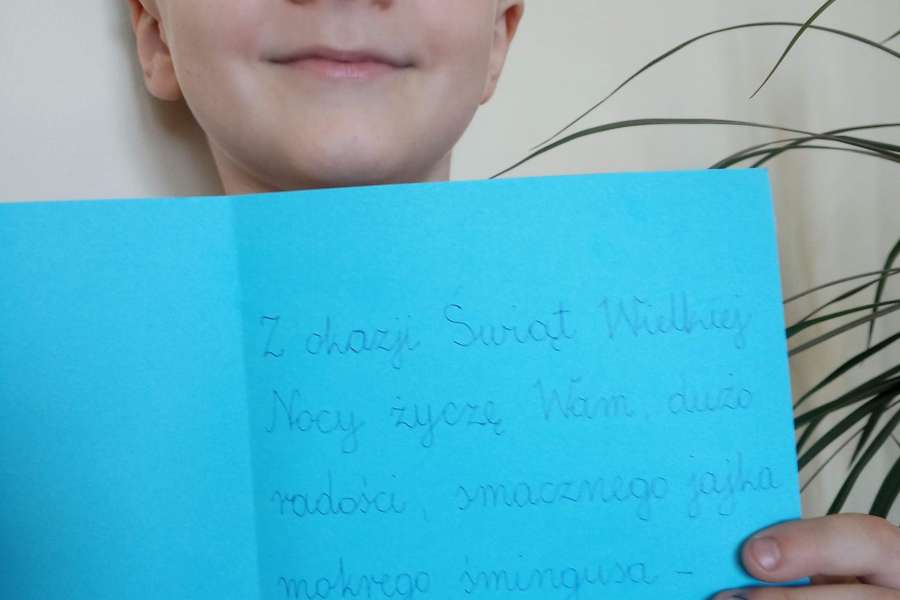 Z okazji Świąt Wielkiej
Nocy życzę Wam, dużo
radości, smacznego jajka
mokrego śmingusa -